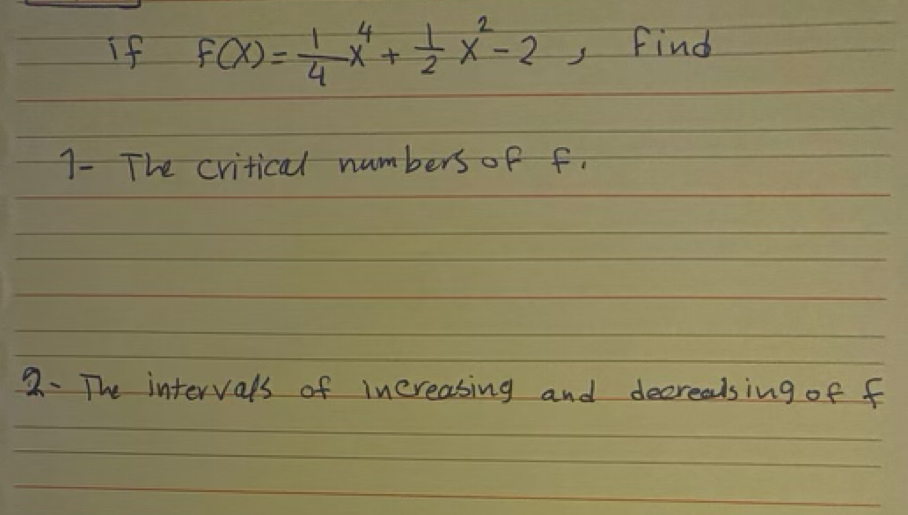 if f(x) = 1/4 x^4 + 1/2 x^2 - 2 , Find
1- The critical numbers of f.
2- The intervals of increasing and decreasing of f